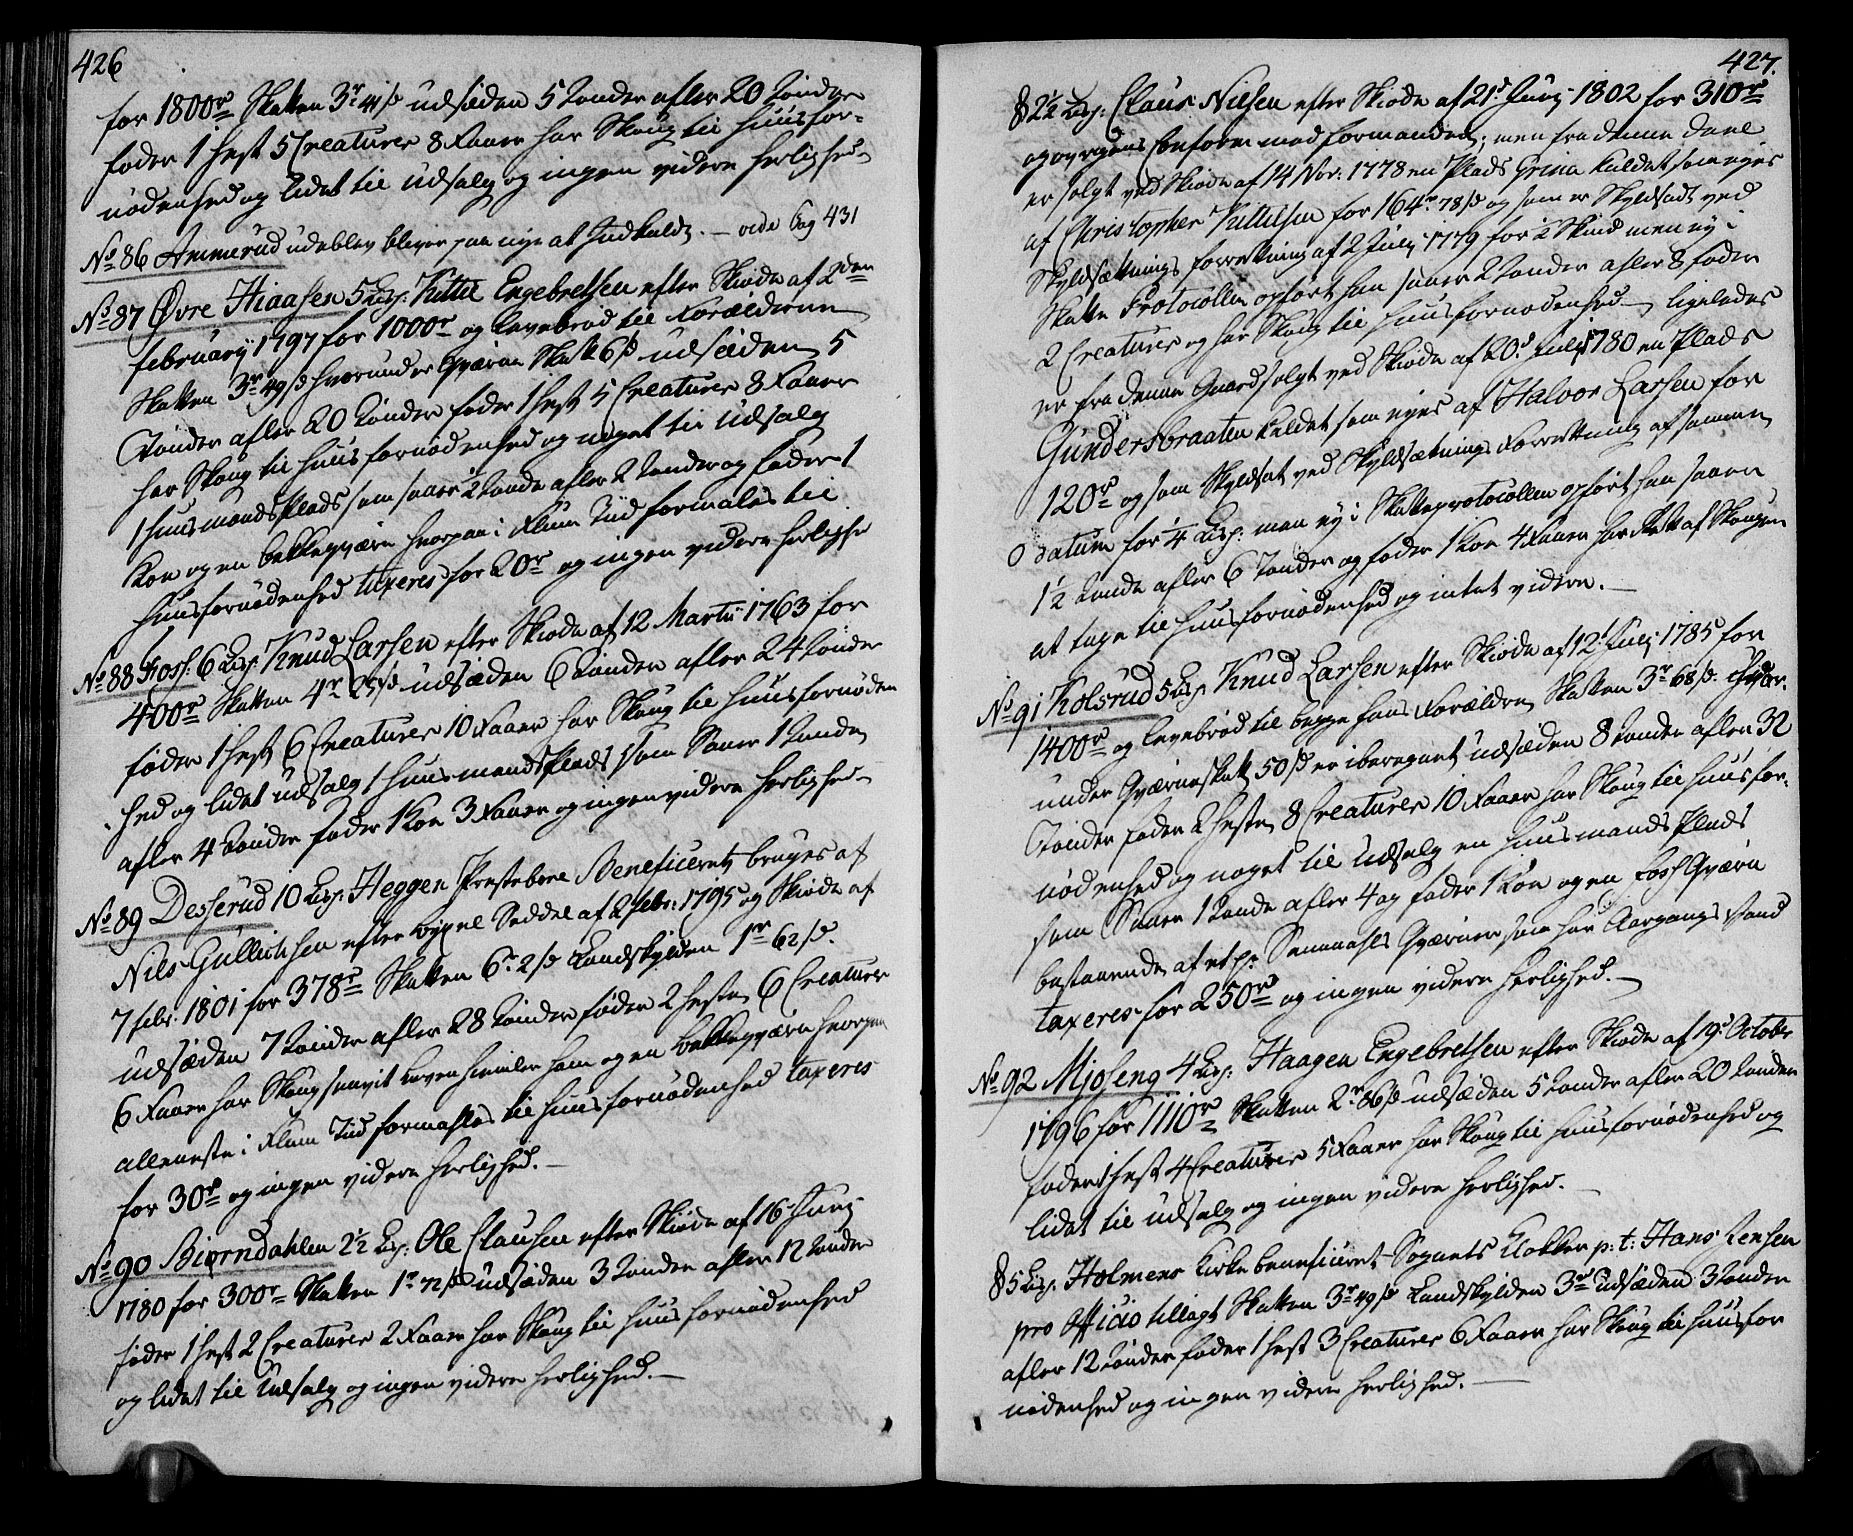 426
for 1800r Skatten 3r 41s udsæden 5 Tønder afler 20 Tønder
føder 1 Hest 5 Creaturer 8 Faaer har Skoug til Huusfor-
nødenhed og lidet til Udsalg og ingen videre herlighed
No 86 Ammerud udeblev bliver paa nye at Indkald. — vide Pag 431
No 87 Øvre Hiaasen 5 Lisp: Kittil Engebretsen efter Skiøde af 2den
februarij 1797 for 1000r og Levebrød til Forældrene
Skatten 3r 49s hvorunder Qværne Skatt 6s udsæden 5
Tønder afler 20 Tønder føder 1 hest 5 Creaturer 8 Faaer
har Skoug til Huusfornødenhed og noget til Udsalg
1 Huusmands Plads som saaer ½ Tønde afler 2 Tønder og føder 1
Koe og en bekkeqværn hvorpaa i Flum Tiid formales til
Huusfornødenhed taxeres for 20r og ingen videre herlighe
No 88 Foss: 6 Lisp: Knud Larsen efter Skiøde af 12 Martii 1763 for
400r Skatten 4r 25s udsæden 6 Tønder afler 24 Tønder
føder 1 hest 6 Creaturer 10 Faaer har Skoug til Huusfornøden
hed og lidet udsalg 1 Huusmands Plads som Saaer 1 Tønde
afler 4 Tønder føder 1 Koe 3 Faaer og ingen videre herlighed
No 89 Desserud 10 Lisp: Heggen Prestebole Beneficeret bruges af
Nils Gullichsen efter bÿxel Seddel af 2 febr: 1795 og Skiøde af
7 febr: 1801 for 378r Skatten 6r 2s Landskylden 1r 62s.
udsæden 7 Tønder afler 28 Tønder føder 2 Heste 6 Creaturer
6 Faaer har Skoug saavit Loven hiemler ham og en bekkeqværn hvorpaa
alleneste i Flum Tiid formahles til Huusfornødenhed taxeres
for 30r og ingen videre herlighed. —
No 90 Biørndahlen 2½ Lisp: Ole Clausen efter Skiøde af 16 Junij
1780 for 300r Skatten 1r 72s udsæden 3 Tønder afler 12 Tønder
føder 1 hest 2 Creaturer 2 Faaer har Skoug til Huusfornødenhed
og lidet til Udsalg og ingen videre herlighed. —
427.
8 2½ Lisp: Claus Nilsen efter Skiøde af 21d Junij 1802 for 310r
og øvrigens Conform med formanden; men fra denne deel
er solgt ved Skiøde af 14 Nov: 1778 en Plads Grina kaldet som eyes
af Christopher Kittilsen for 164r 78s og som er Skyldsadt ved
Skyldsætnings forretning af 2 Julij 1779 for 2 Skind men ey i
Skatte Protocollen opført han saaer 2 Tønder afler 8 føder
2 Creaturer og har Skoug til Huusfornødenhed — ligeledes
er fra denne Gaard solgt ved Skiøde af 20d Julij 1780 en Plads
Gundersbraaten kaldet som eyes af Halvor Larsen for
120r og som Skyldsat ved Skyldsætnings Forretning af samme
datum for ¼ Lisp: men ey i Skatteprotocollen opført han saaer
1½ Tønde afler 6 Tønder og føder 1 Koe 4 Faaer har Rett af Skougen
at tage til Huusfornødenhed og intet videre. —
No 91 Kolsrud 5 Lisp Knud Larsen efter Skiøde af 12t Julij 1785 for
1400r og Levebrød til begge hans Forældre Skatten 3r 68s. hvor-
under Qværneskatt 50s er iberegnet udsæden 8 Tønder afler 32
Tønder føder 2 Heste 8 Creaturer 10 Faaer har Skoug til Huusfor-
nødenhed og noget til Udsalg en Huusmands Plads
som Saaer 1 Tønde afler 4 og føder 1 Koe og en foss Qværn
bestaaende af et pr Sammahls Qværner som har Aargangs Vand
taxeres for 250r og ingen videre herlighed. —
No 92 Mjøseng 4 Lisp: Haagen Engebretsen efter Skiøde af 19d October
1796 for 1110r Skatten 2r 86s udsæden 5 Tønder afler 20 Tønder
føder 1 hest 4 Creaturer 5 Faaer har Skoug til Huusfornødenhed og
lidet til udsalg og ingen videre herlighed. —
8 5 Lisp: Holmens Kirke beneficeret Sognets Klokker p: t: Hans Jensen
pro Officio tillagt Skatten 3r 49s Landskylden 3r Udsæden 3 Tønder
afler 12 Tønder føder 1 hest 3 Creaturer 6 Faaer har Skoug til Huusfor
nødenhed og ingen videre herlighed. —